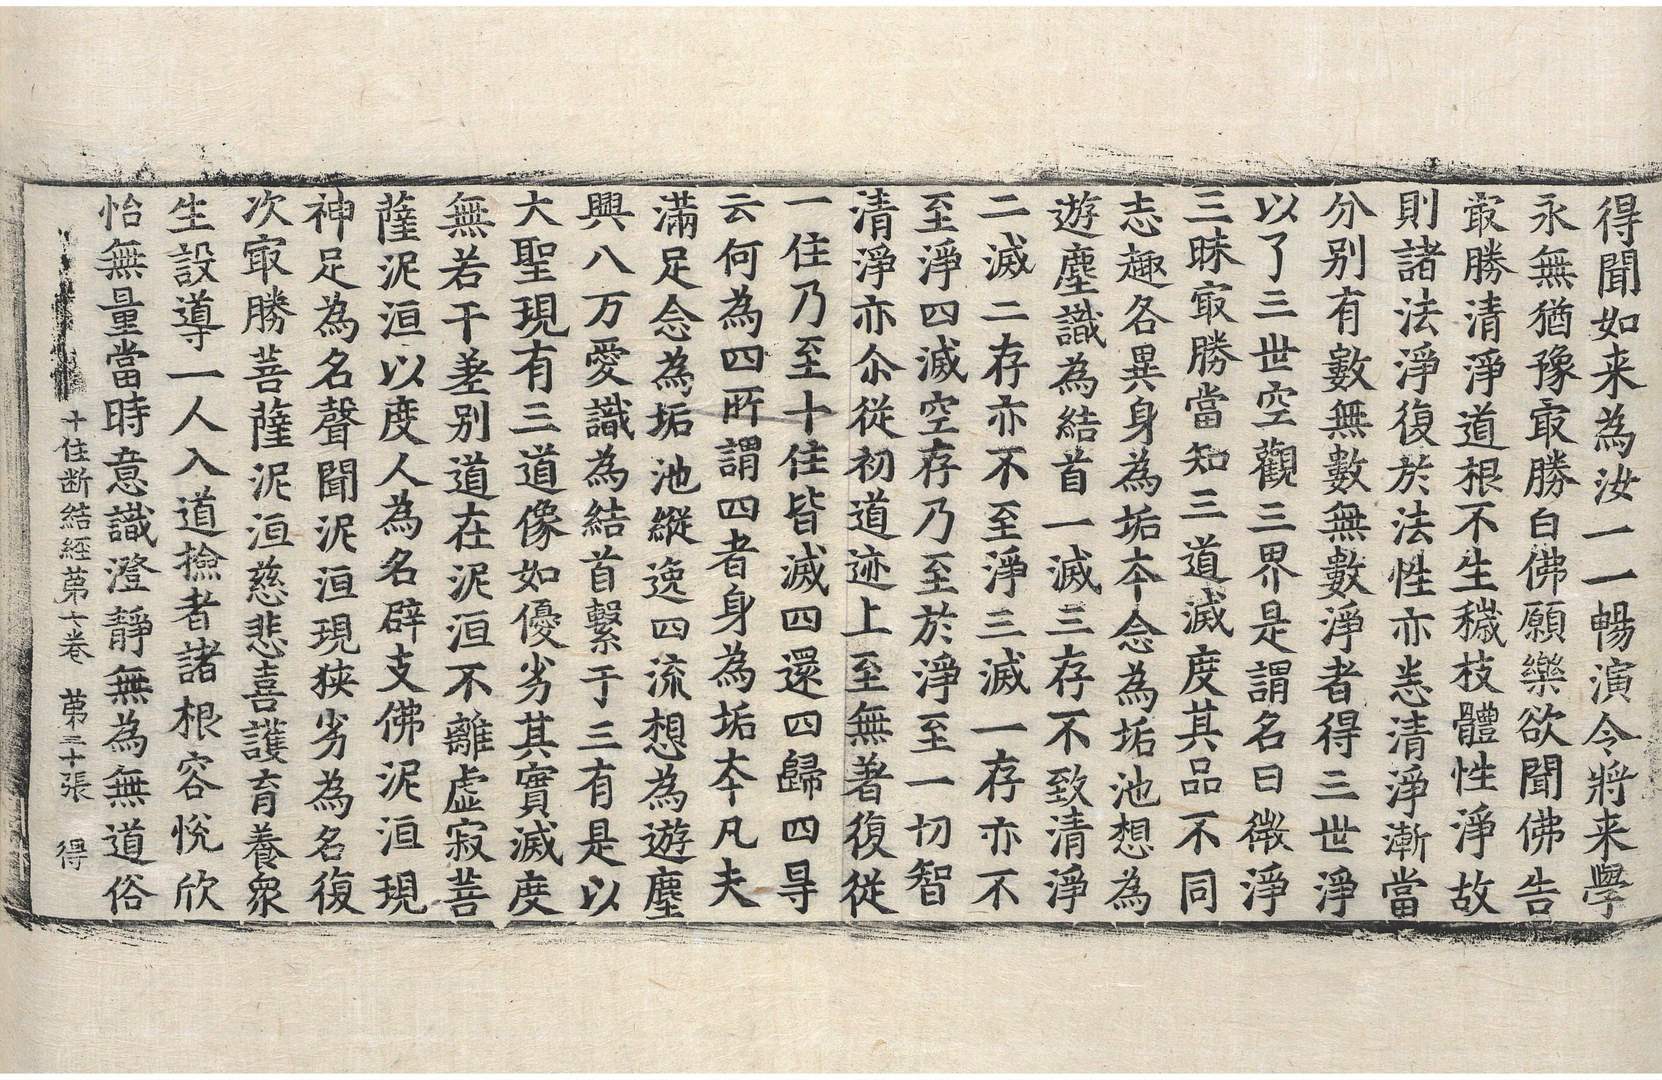 得聞如来為汝一一暢演令將来學
永無猶豫㝡勝白佛願樂欲聞佛告
㝡勝清淨道根不生穢枝體性淨故
則諸法淨復於法性亦恙清淨漸當
分別有數無數無數淨者得三世淨
以了三世空觀三界是謂名曰微淨
三昧㝡勝當知三道滅度其品不同
志趣各異身為垢夲念為垢池想為
遊塵識為結首一滅三存不致清淨
二滅二存亦不至淨三滅一存亦不
至淨四滅空存乃至於淨至一切智
清淨亦尒從初道迹上至無著復從
一住乃至十住皆滅四還四歸四㝵
云何為四所謂四者身為垢夲凡夫
滿足念為垢池縱逸四流想為遊塵
興八万愛識為結首繫于三有是以
大聖現有三道像如優劣其實滅度
無若干差別道在泥洹不離虛寂菩
薩泥洹以度人為名辟支佛泥洹現
神足為名聲聞泥洹現狹劣為名復
次㝡勝菩薩泥洹慈悲喜護育養衆
生設導一人入道撿者諸根容悅欣
怡無量當時意識澄靜無為無道俗
十住断結經苐七卷 苐三十張 得